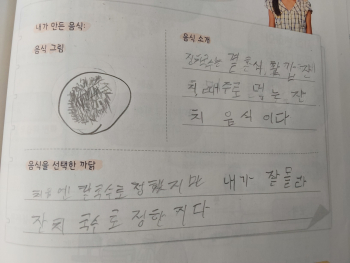 내가 만든 음식:
음식 그림
음식 소개
잔치국수는 결혼식, 환갑 잔
치 때 주로 먹는 잔
치 음식이다
음식을 선택한 까닭
처음엔 떡국수로 정했지만 내가 잘 몰라
잔치 국수로 정한 거다